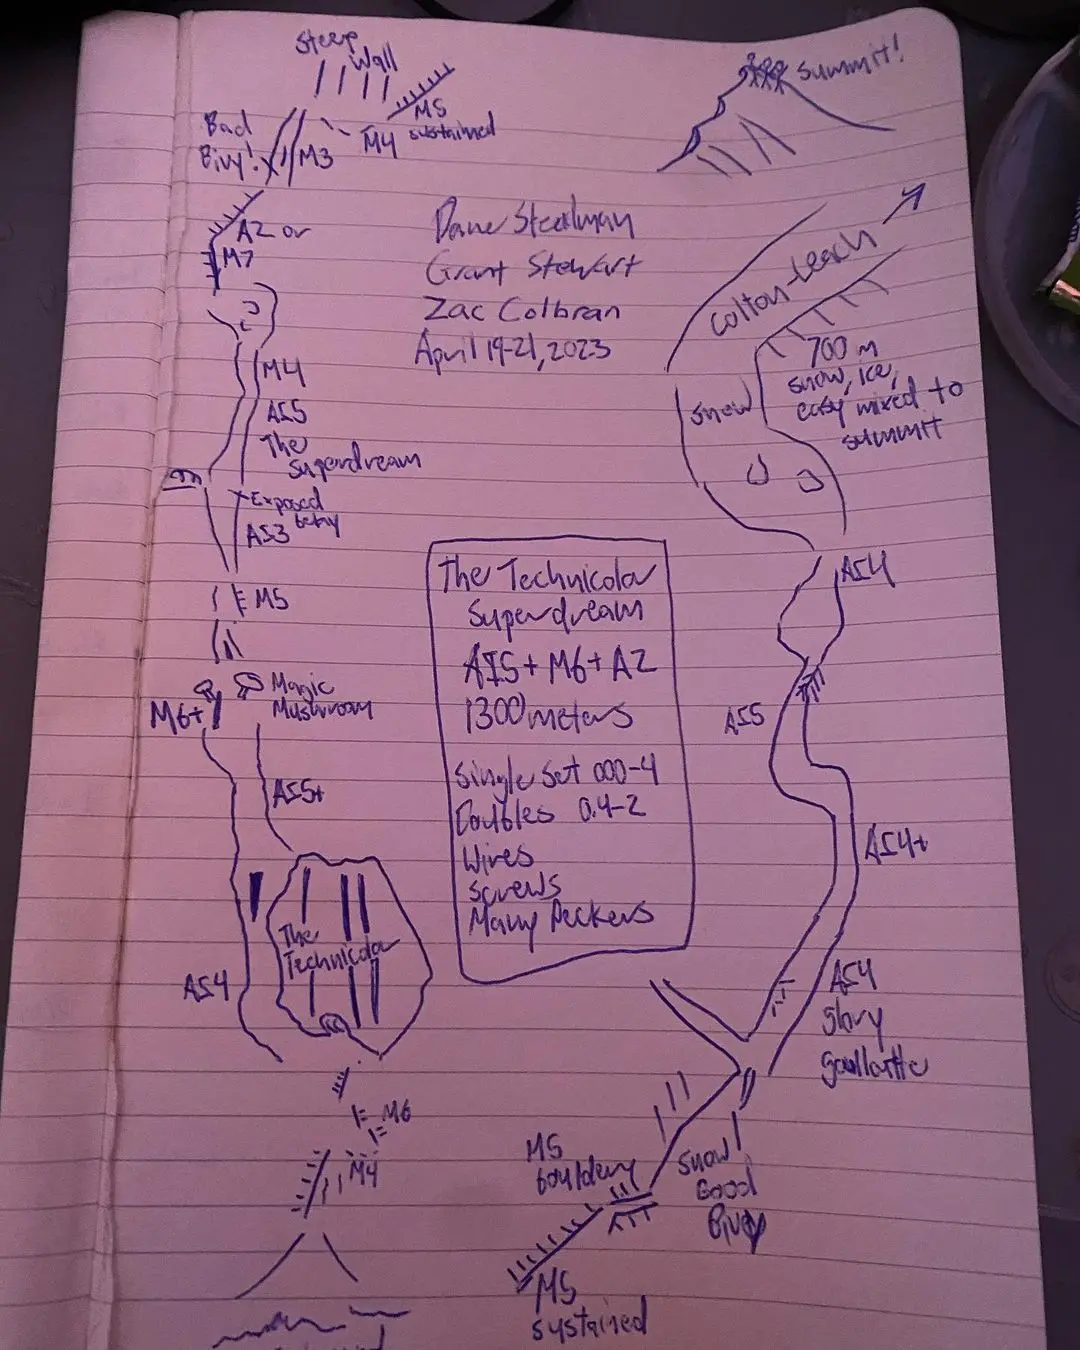 Steep
Wall
M5
sustained
M4
Bad
Bivy!
M3
A2 or
M7
M4
AI5
The
Superdream
Exposed
belay
AI3
M5
Magic
Mushroom
M6+
AI5+
The
Technicolor
AI4
M6
M4
Summit!
Dane Steadman
Grant Stewart
Zac Colbran
April 19-21, 2023
The Technicolor
Superdream
AI5+ M6+ A2
1300 meters
Single Set 000-4
Doubles 0.4-2
Wires
Screws
Many Peckers
Colton-Leach
700 m
snow, ice,
easy mixed to
summit
snow
AI4
AI5
AI4+
AI4
Glory
goullotte
Snow
Good
Bivy
M5
bouldery
M5
sustained